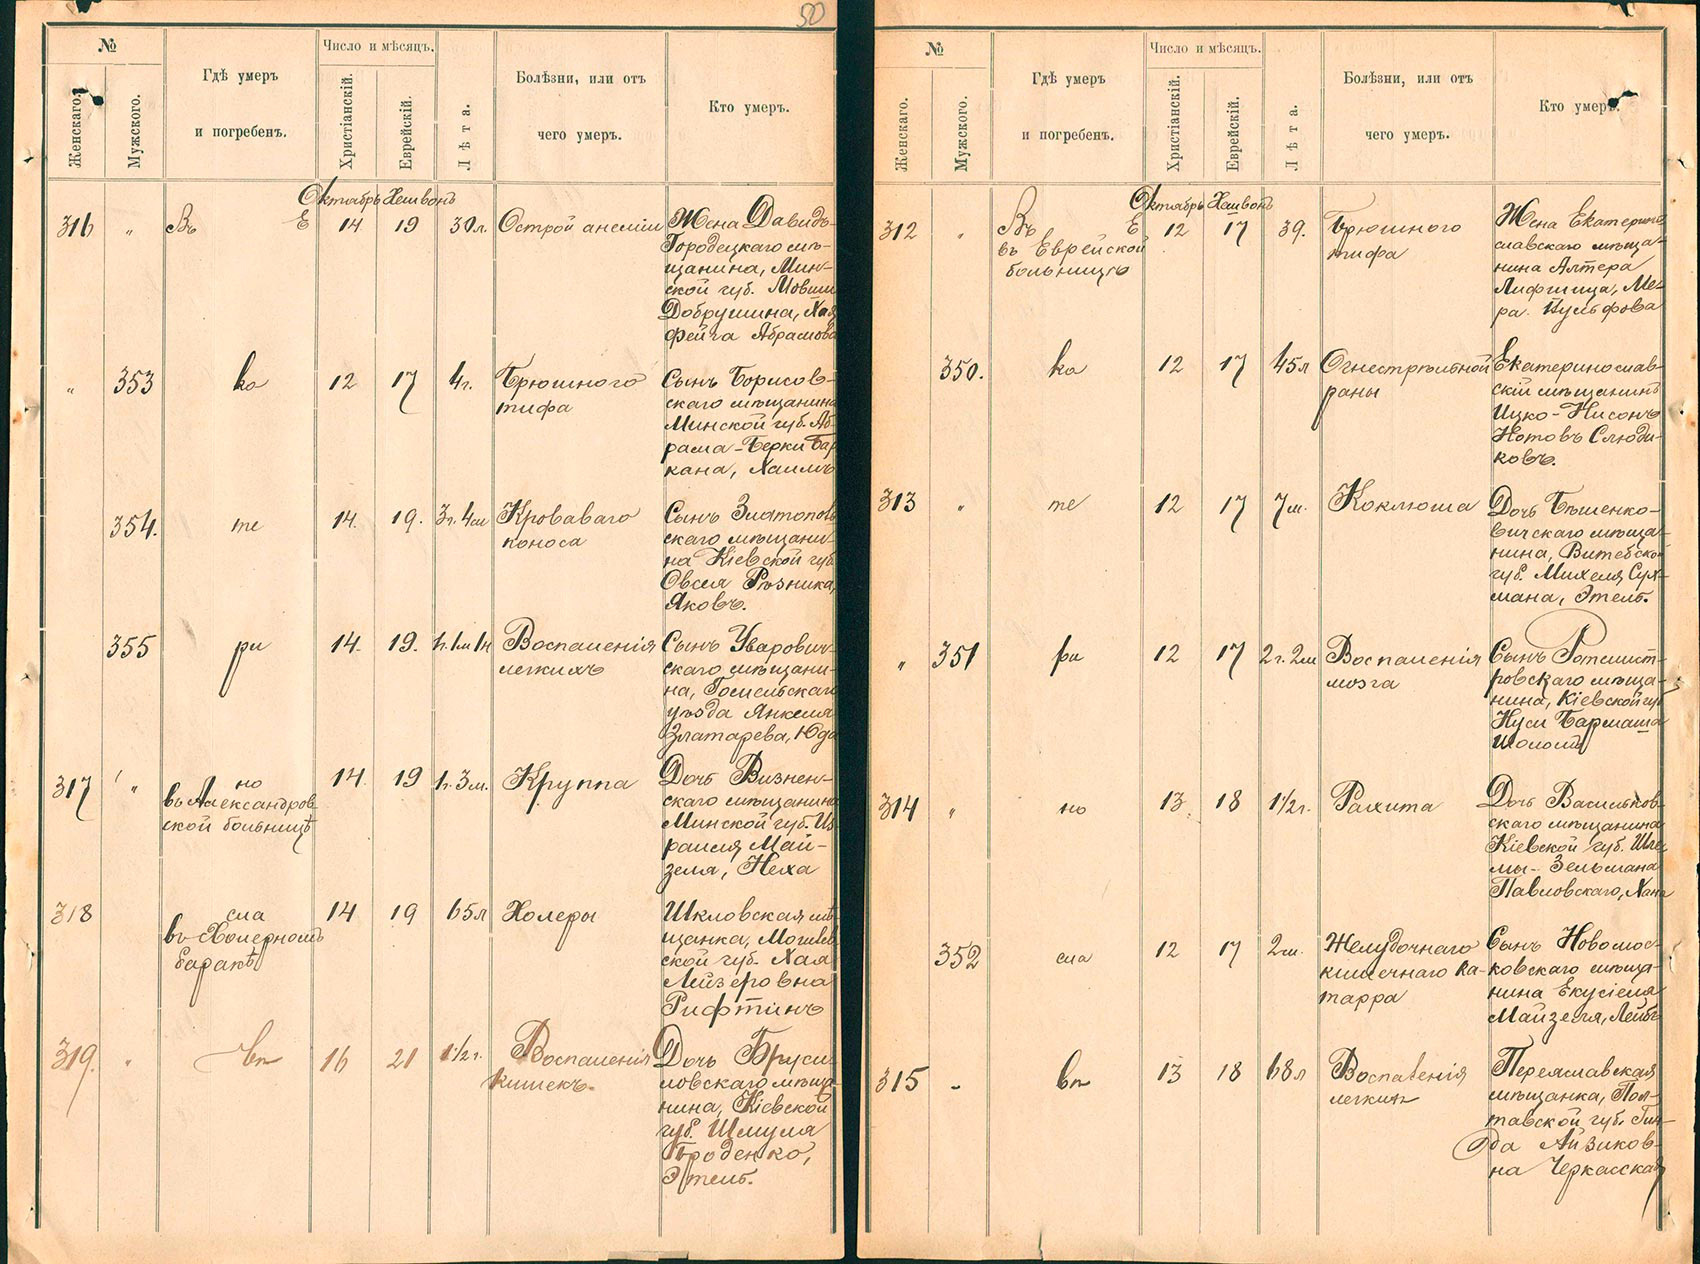 50
№
Число и мѣсяцъ.
Женскаго.
Мужского.
Гдѣ умеръ
и погребенъ.
Христіанскій.
Еврейскій.
Лѣта.
Болѣзни, или отъ
чего умеръ.
Кто умеръ.
Октябрь Хешвонъ
316 „ Въ Е 14 19 30л. Острой анеміи
Жена Давидъ-
Городецкаго мѣ-
щанина, Мин-
ской губ. Мовши
Добрушина, Хая
Фейга Абрамова
„ 353 ка 12 17 4г. Брюшного
тифа
Сынъ Борисов-
скаго мѣщанина
Минской губ. Аб-
рама-Берки Бар
кана, Хаимъ
354. те 14. 19. 3г. 4м Кроваваго
поноса
Сынъ Златополь
скаго мѣщани-
на Кіевской губ.
Овсея Рѣзника,
Яковъ.
355 ри 14. 19. Воспаленія
легкихъ
Сынъ Уварович-
скаго мѣщани-
на, Гомельскаго
уѣзда Янкеля
Златарева, Юда
317 „ но
въ Александров
ской больницѣ
14. 19 1г. 3м. Круппа
Дочь Визнен-
скаго мѣщанина
Минской губ. Из
раиля Май-
зеля, Неха
318 сла
въ Холерномъ
баракѣ
14 19 65л Холеры
Шкловская мѣ-
щанка, Могилев
ской губ. Хая
Лейзеровна
Рифтинъ
319. „ вп 16 21 1 1/2 г. Воспаленія
кишекъ.
Дочь Бруси-
ловскаго мѣща-
нина, Кіевской
губ. Шмуля
Броденко,
Этель.
№
Число и мѣсяцъ.
Женскаго.
Мужского.
Гдѣ умеръ
и погребенъ.
Христіанскій.
Еврейскій.
Лѣта.
Болѣзни, или отъ
чего умеръ.
Кто умеръ.
Октябрь Хешвонъ
312 „ Въ Е
въ Еврейской
больницѣ
12 17 39. Брюшного
тифа
Жена Екатерино
славскаго мѣща-
нина Алтера
Лифшица, Ме-
ра Пульфова
350. ка 12 17 45л Огнестрѣльной
раны
Екатеринослав-
скій мѣщанинъ
Ицко-Нисонъ
Нотовъ Слюди-
ковъ.
313 „ те 12 17 7м. Коклюша
Дочь Бѣшенко-
вичскаго мѣща-
нина, Витебской
губ. Михеля Сух-
мана, Этель.
„ 351 ри 12 17 2г. 2м Воспаленія
мозга
Сынъ Ротмист-
ровскаго мѣща-
нина, Кіевской губ
Нуси Бармаша
Шоломъ
314 „ но 13 18 1 1/2 г. Рахита
Дочь Васильков-
скаго мѣщанина
Кіевской губ. Шле
мы-Зельмана
Павловскаго, Хана
352 сла 12 17 2м. Желудочнаго
кишечнаго ка-
тарра
Сынъ Новомос-
ковскаго мѣща-
нина Екусіеля
Майзеля, Лейбъ
315 „ вп 13 18 68л Воспаленія
легкихъ
Переяславская
мѣщанка, Пол-
тавской губ. Гин-
да Айзиков-
на Черкасская